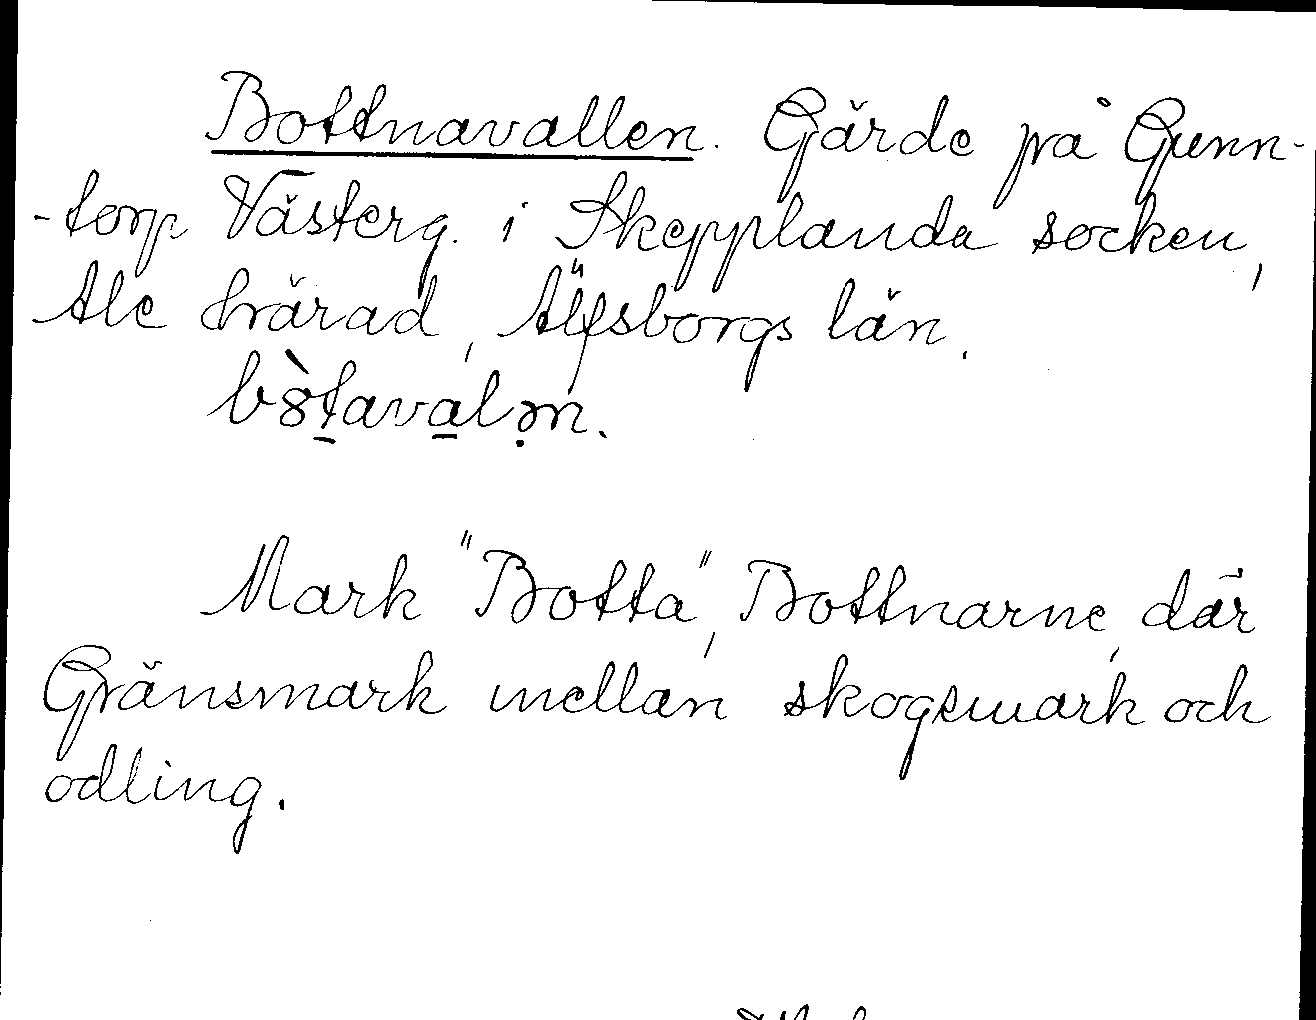 Bottnavallen. Gärde på Gunn-
-torp Västerg. i Skepplanda socken,
Ale härad, Älfsborgs län.
b8̀tavalən.
Mark "Botta", Bottnarne, där
Gränsmark mellan skogsmark och
odling.